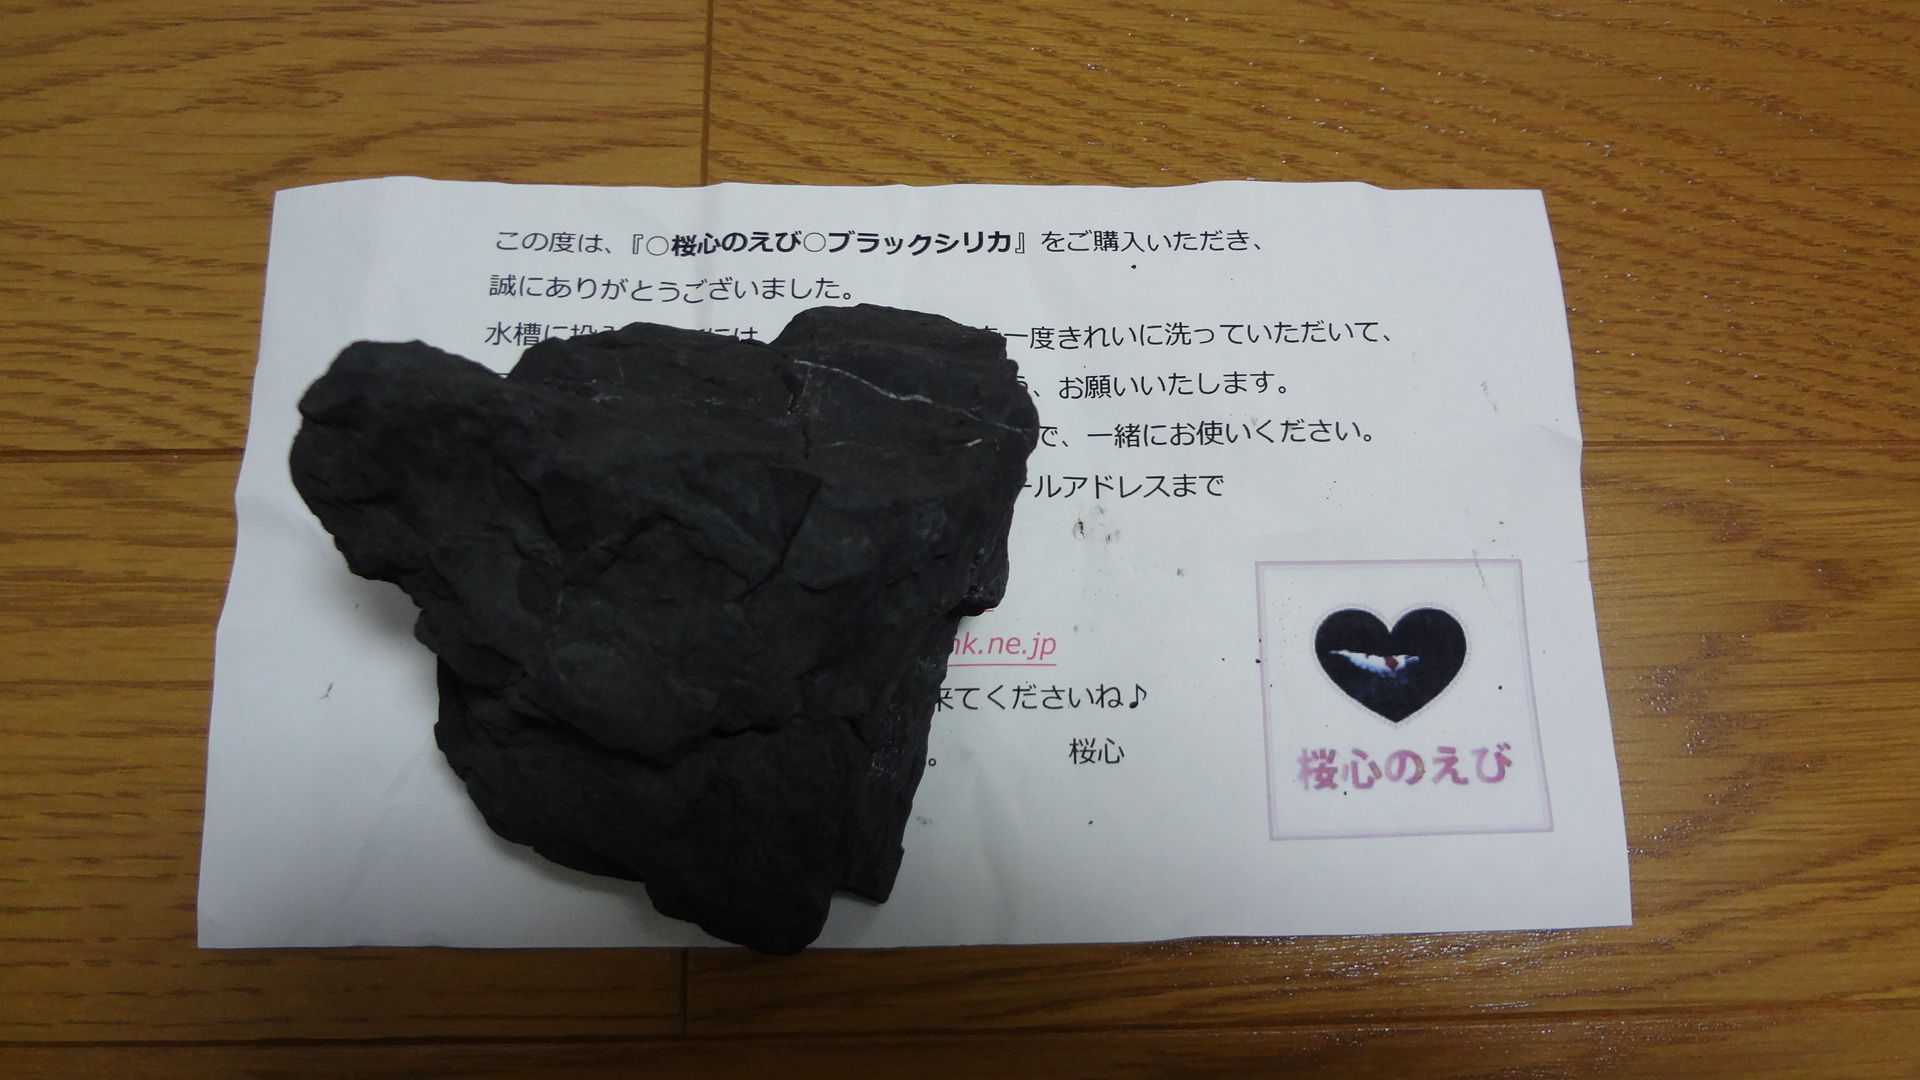 この度は、『○桜心のえび○ブラックシリカ』をご購入いただき、
誠にありがとうございました。
水槽に 一度きれいに洗っていただいて、
、お願いいたします。
で、一緒にお使いください。
ールアドレスまで
nk.ne.jp
来てくださいね♪
。 桜心
桜心のえび